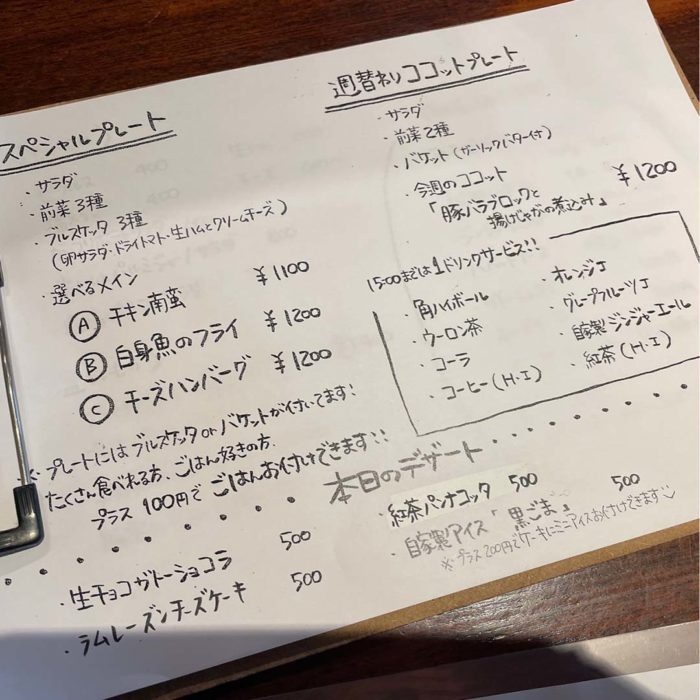 スペシャルプレート
・サラダ
・前菜3種
・ブルスケッタ 3種
(卵サラダ・ドライトマト・生ハムとクリームチーズ)
・選べるメイン
Ⓐ チキン南蛮 ¥1100
Ⓑ 白身魚のフライ ¥1200
Ⓒ チーズハンバーグ ¥1200
※プレートにはブルスケッタorバケットが付いてます!
たくさん食べれる方、ごはん好きの方、
プラス100円で ごはんお付けできます!!
週替わりココットプレート
・サラダ
・前菜2種
・バケット(ガーリックバター付)
・今週のココット ¥1200
「豚バラブロックと
揚げじゃがの煮込み」
15:00までは1ドリンクサービス!!
・角ハイボール
・ウーロン茶
・コーラ
・コーヒー(H・I)
・オレンジJ
・グレープフルーツJ
・自家製ジンジャーエール
・紅茶(H・I)
本日のデザート
・生チョコガトーショコラ 500
・ラムレーズンチーズケーキ 500
・紅茶パンナコッタ 500
・自家製アイス「黒ごま」 500
※プラス200円でケーキにミニアイスお付けできます